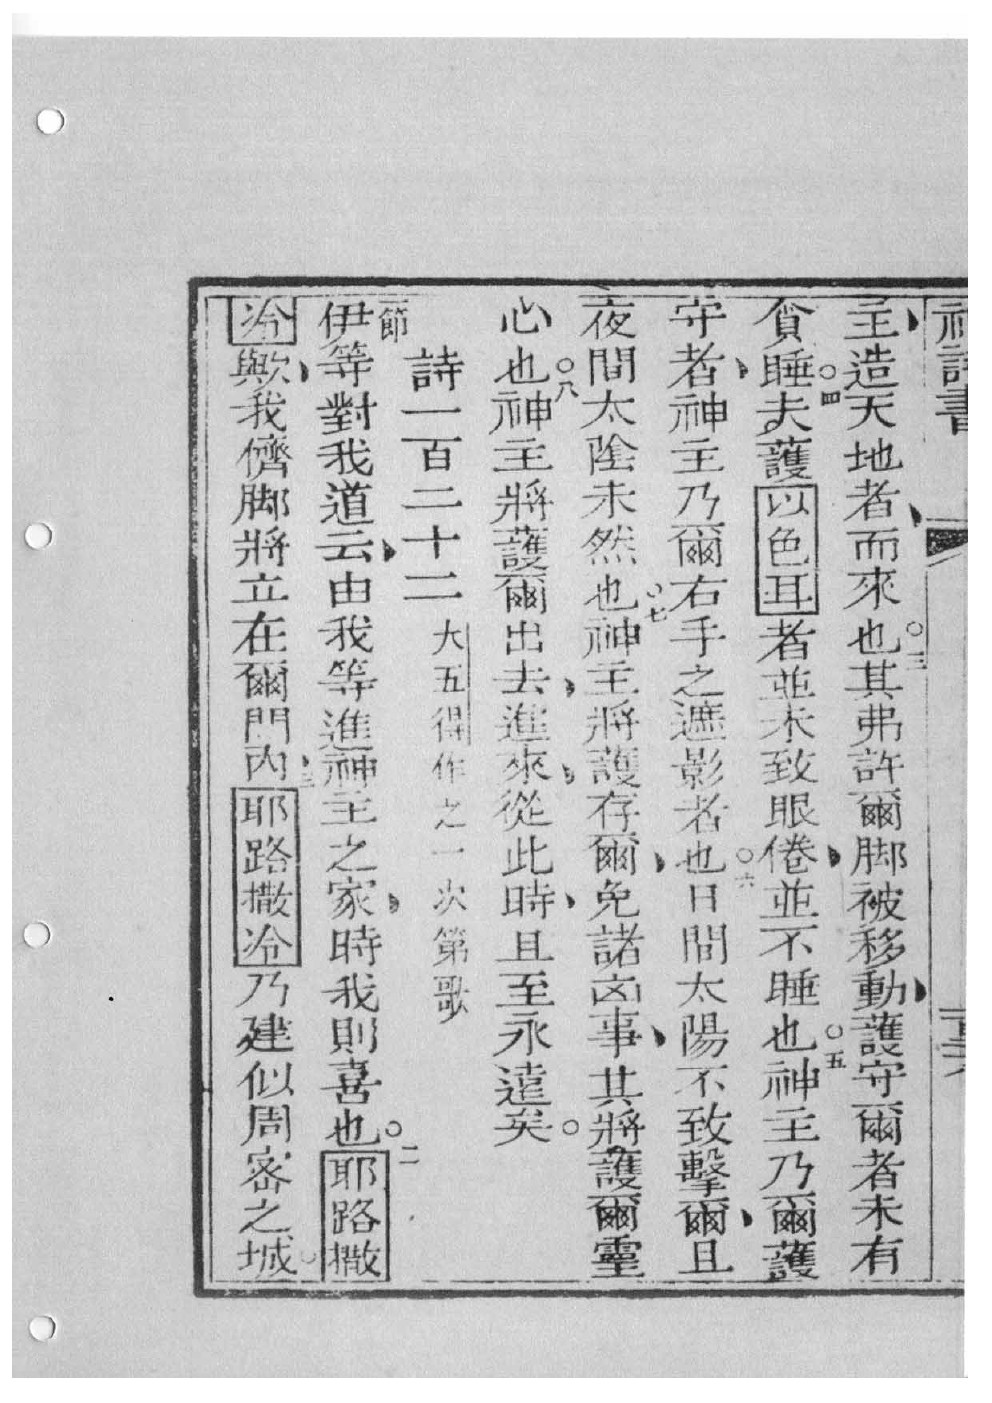 神詩書
主造天地者而來也○三其弗許爾脚被移動護守爾者未有
貪睡○四夫護以色耳者並未致眼倦並不睡也○五神主乃爾護
守者神主乃爾右手之遮影者也○六日間太陽不致擊爾且
夜間太陰未然也○七神主將護存爾免諸凶事其將護爾靈
心也○八神主將護爾出去進來從此時且至永遠矣○
詩一百二十二 大五得作之一次第歌
一節伊等對我道云由我等進神主之家時我則喜也○二耶路撒
冷歟我儕脚將立在爾門內三耶路撒冷乃建似周密之城